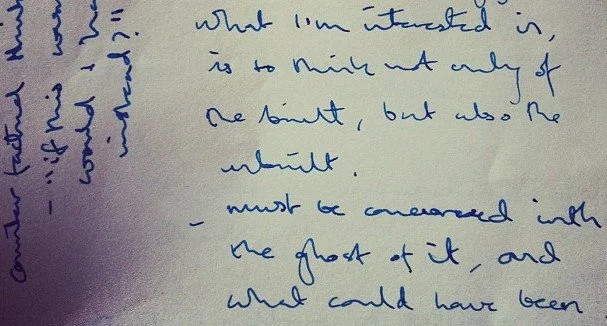 what I'm interested in,
is to think not only of
the built, but also the
unbuilt.
- must be concerned with
the ghost of it, and
what could have been
counter factual think
- "if this was
would I ha
instead?"